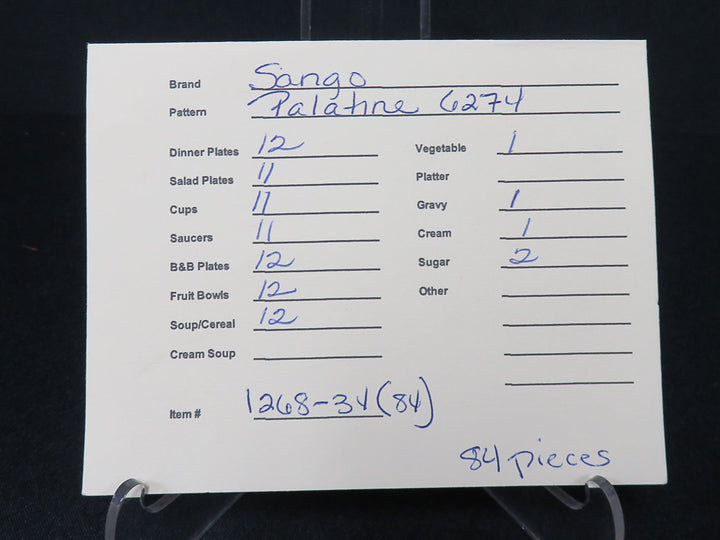 Brand Sango
Pattern Palatine 6274
Dinner Plates 12
Salad Plates 11
Cups 11
Saucers 11
B&B Plates 12
Fruit Bowls 12
Soup/Cereal 12
Cream Soup
Vegetable 1
Platter
Gravy 1
Cream 1
Sugar 2
Other
Item # 1268-34(84)
84 pieces